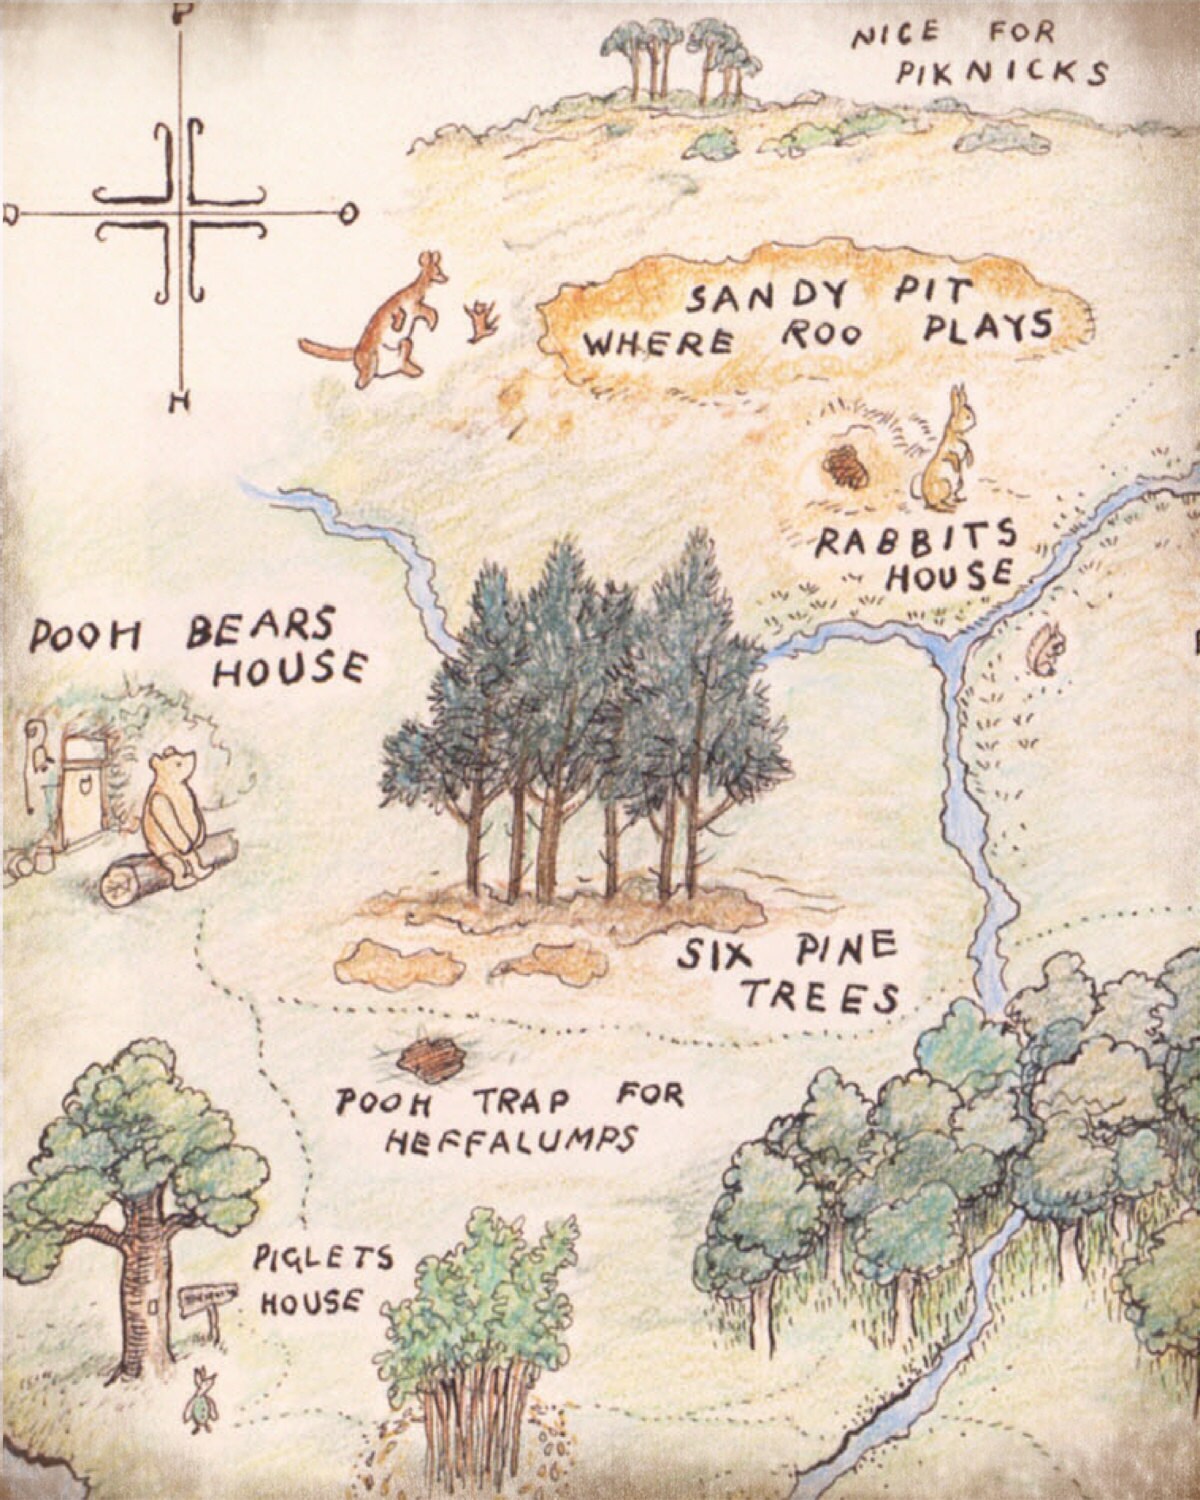 P
NICE FOR
PIKNICKS
O
O
SANDY PIT
WHERE ROO PLAYS
H
RABBITS
HOUSE
POOH BEARS
HOUSE
SIX PINE
TREES
POOH TRAP FOR
HEFFALUMPS
PIGLETS
HOUSE